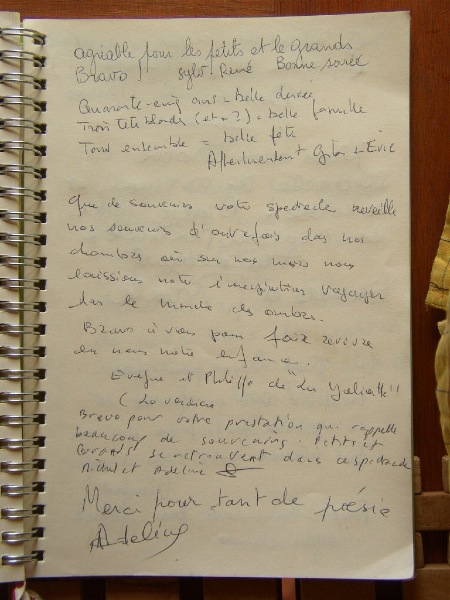 agréable pour les petits et le grands
Bravo sylvt René Bonne soirée
Quarante-cinq ans = belle durée
Trois têtes blondes (et + ?) = belle famille
Tous ensemble = belle fête
Affectueusement
Que de souvenirs votre spectacle reveille
nos souvenirs d'autrefois dans nos
chambres où sur nos murs nous
laissions notre imagination voyager
dans le monde des ombres.
Bravo à vous pour faire revivre
en nous notre enfance.
et Philippe de "La
Bravo pour votre prestation qui rappelle
beaucoup de souvenirs. Petits et
Grands se retrouvent dans ce spectacle
Michel et Adeline
Merci pour tant de poésie
Adeline